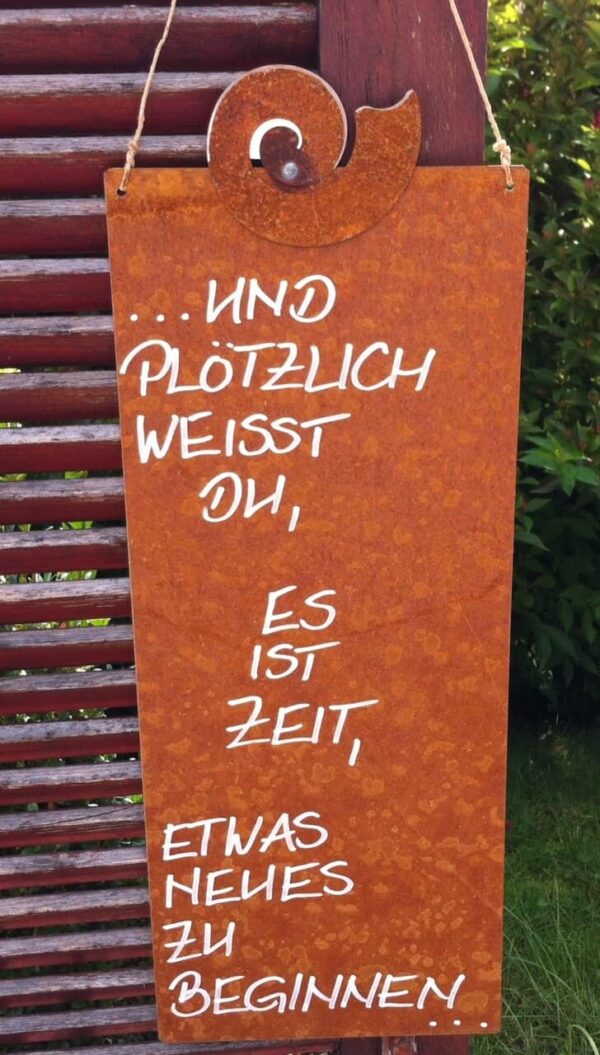 ...UND
PLÖTZLICH
WEISST
DU,
ES
IST
ZEIT,
ETWAS
NEUES
ZU
BEGINNEN...